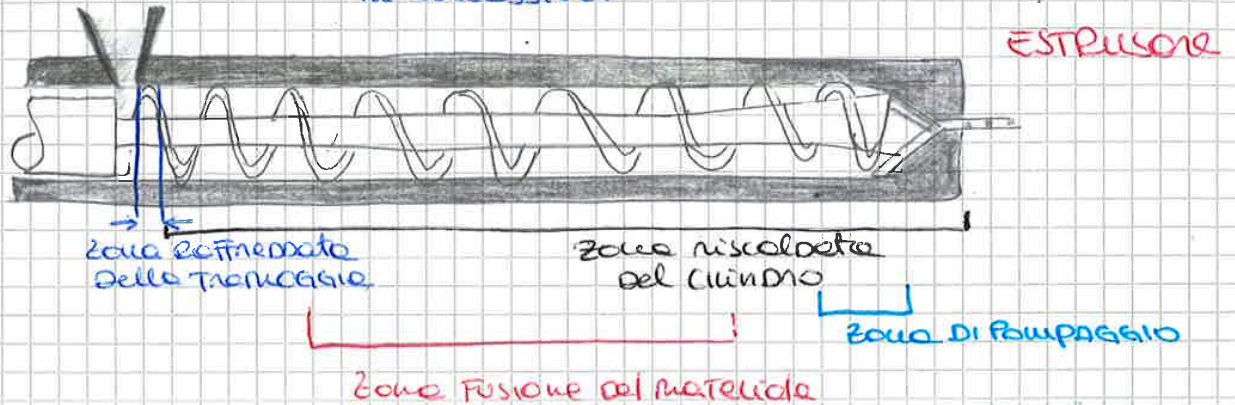 ESTRUSORE
zona raffreddata
della TRAMOGGIA
zona riscaldata
del CILINDRO
zona DI POMPAGGIO
zona FUSIONE del materiale